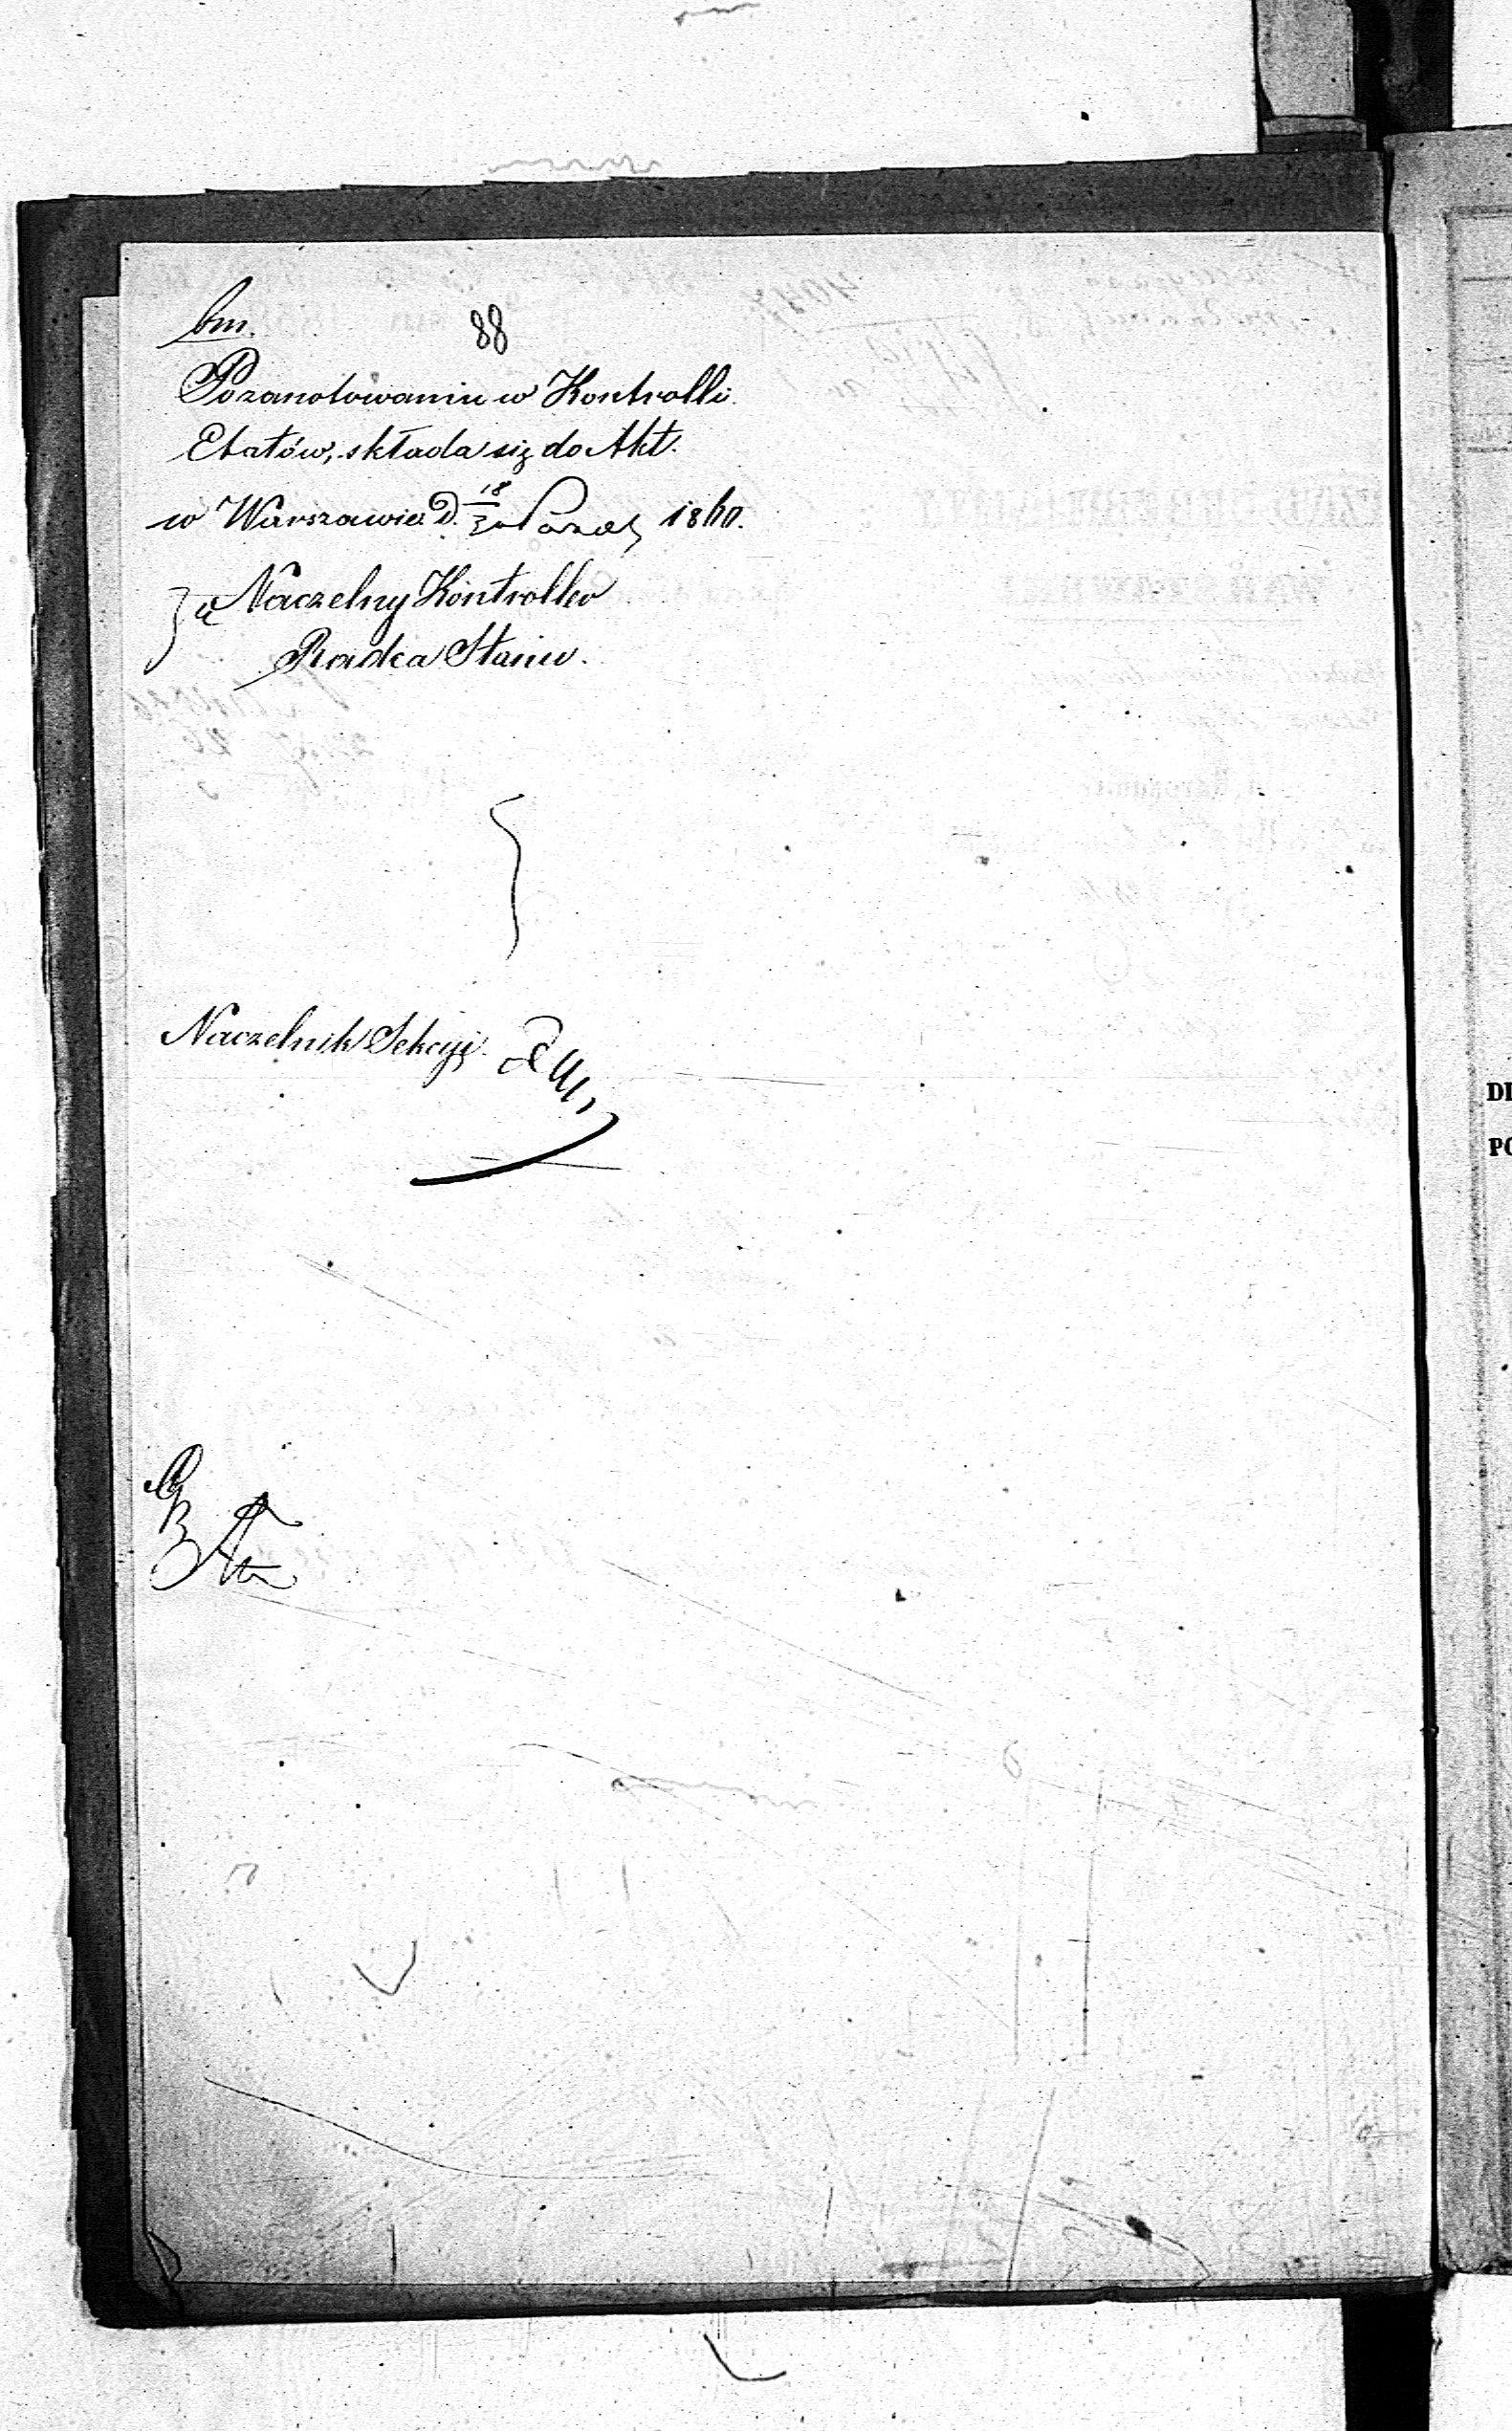 bm.
88
Pozanotowaniu w Kontrolli
Etatów, składa się do Akt.
w Warszawie D. 18/30 Paźd 1860.
Za Naczelny Kontroller
Radca Stanu.
Naczelnik Sekcyi.